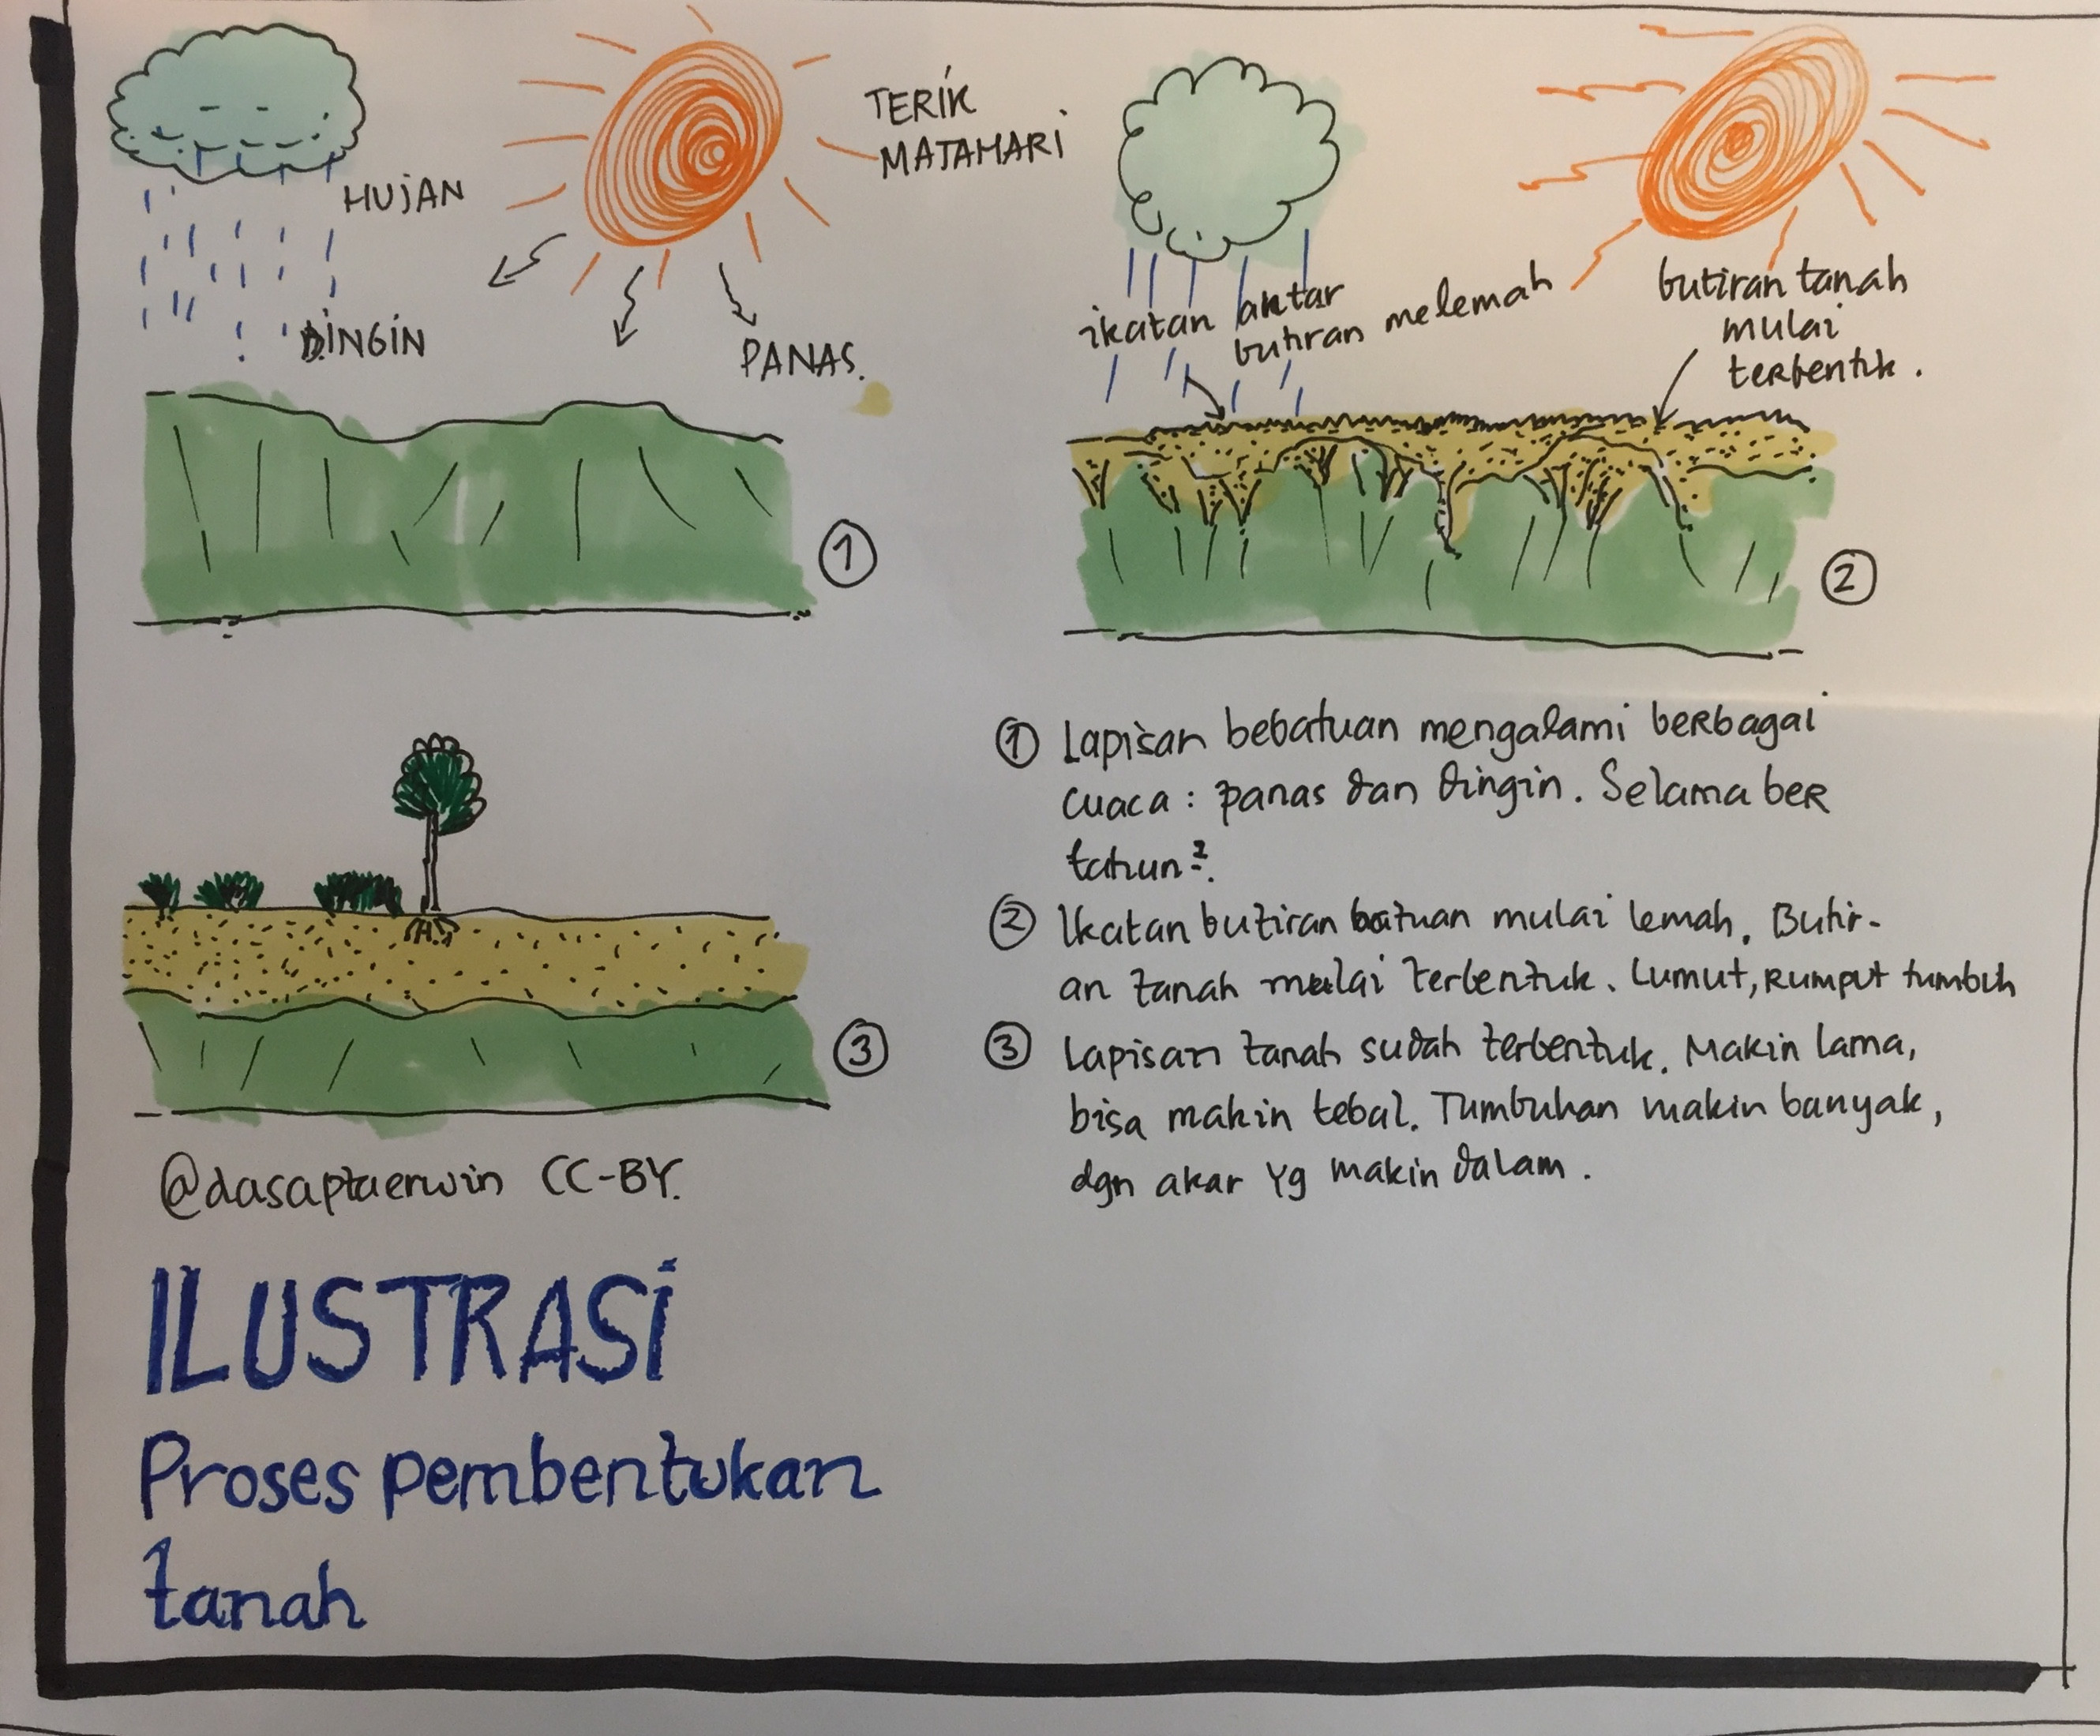 HUJAN
DINGIN
TERIK
MATAHARI
PANAS.
1
ikatan antar
butiran melemah
butiran tanah
mulai
terbentuk.
2
3
1 Lapisan bebatuan mengalami berbagai
cuaca: panas dan dingin. Selama ber
tahun2.
2 Ikatan butiran batuan mulai lemah. Butir-
an tanah mulai terbentuk. Lumut, rumput tumbuh
3 Lapisan tanah sudah terbentuk. Makin lama,
bisa makin tebal. Tumbuhan makin banyak,
dgn akar yg makin dalam.
@dasaptaerwin CC-BY.
ILUSTRASI
Proses pembentukan
tanah